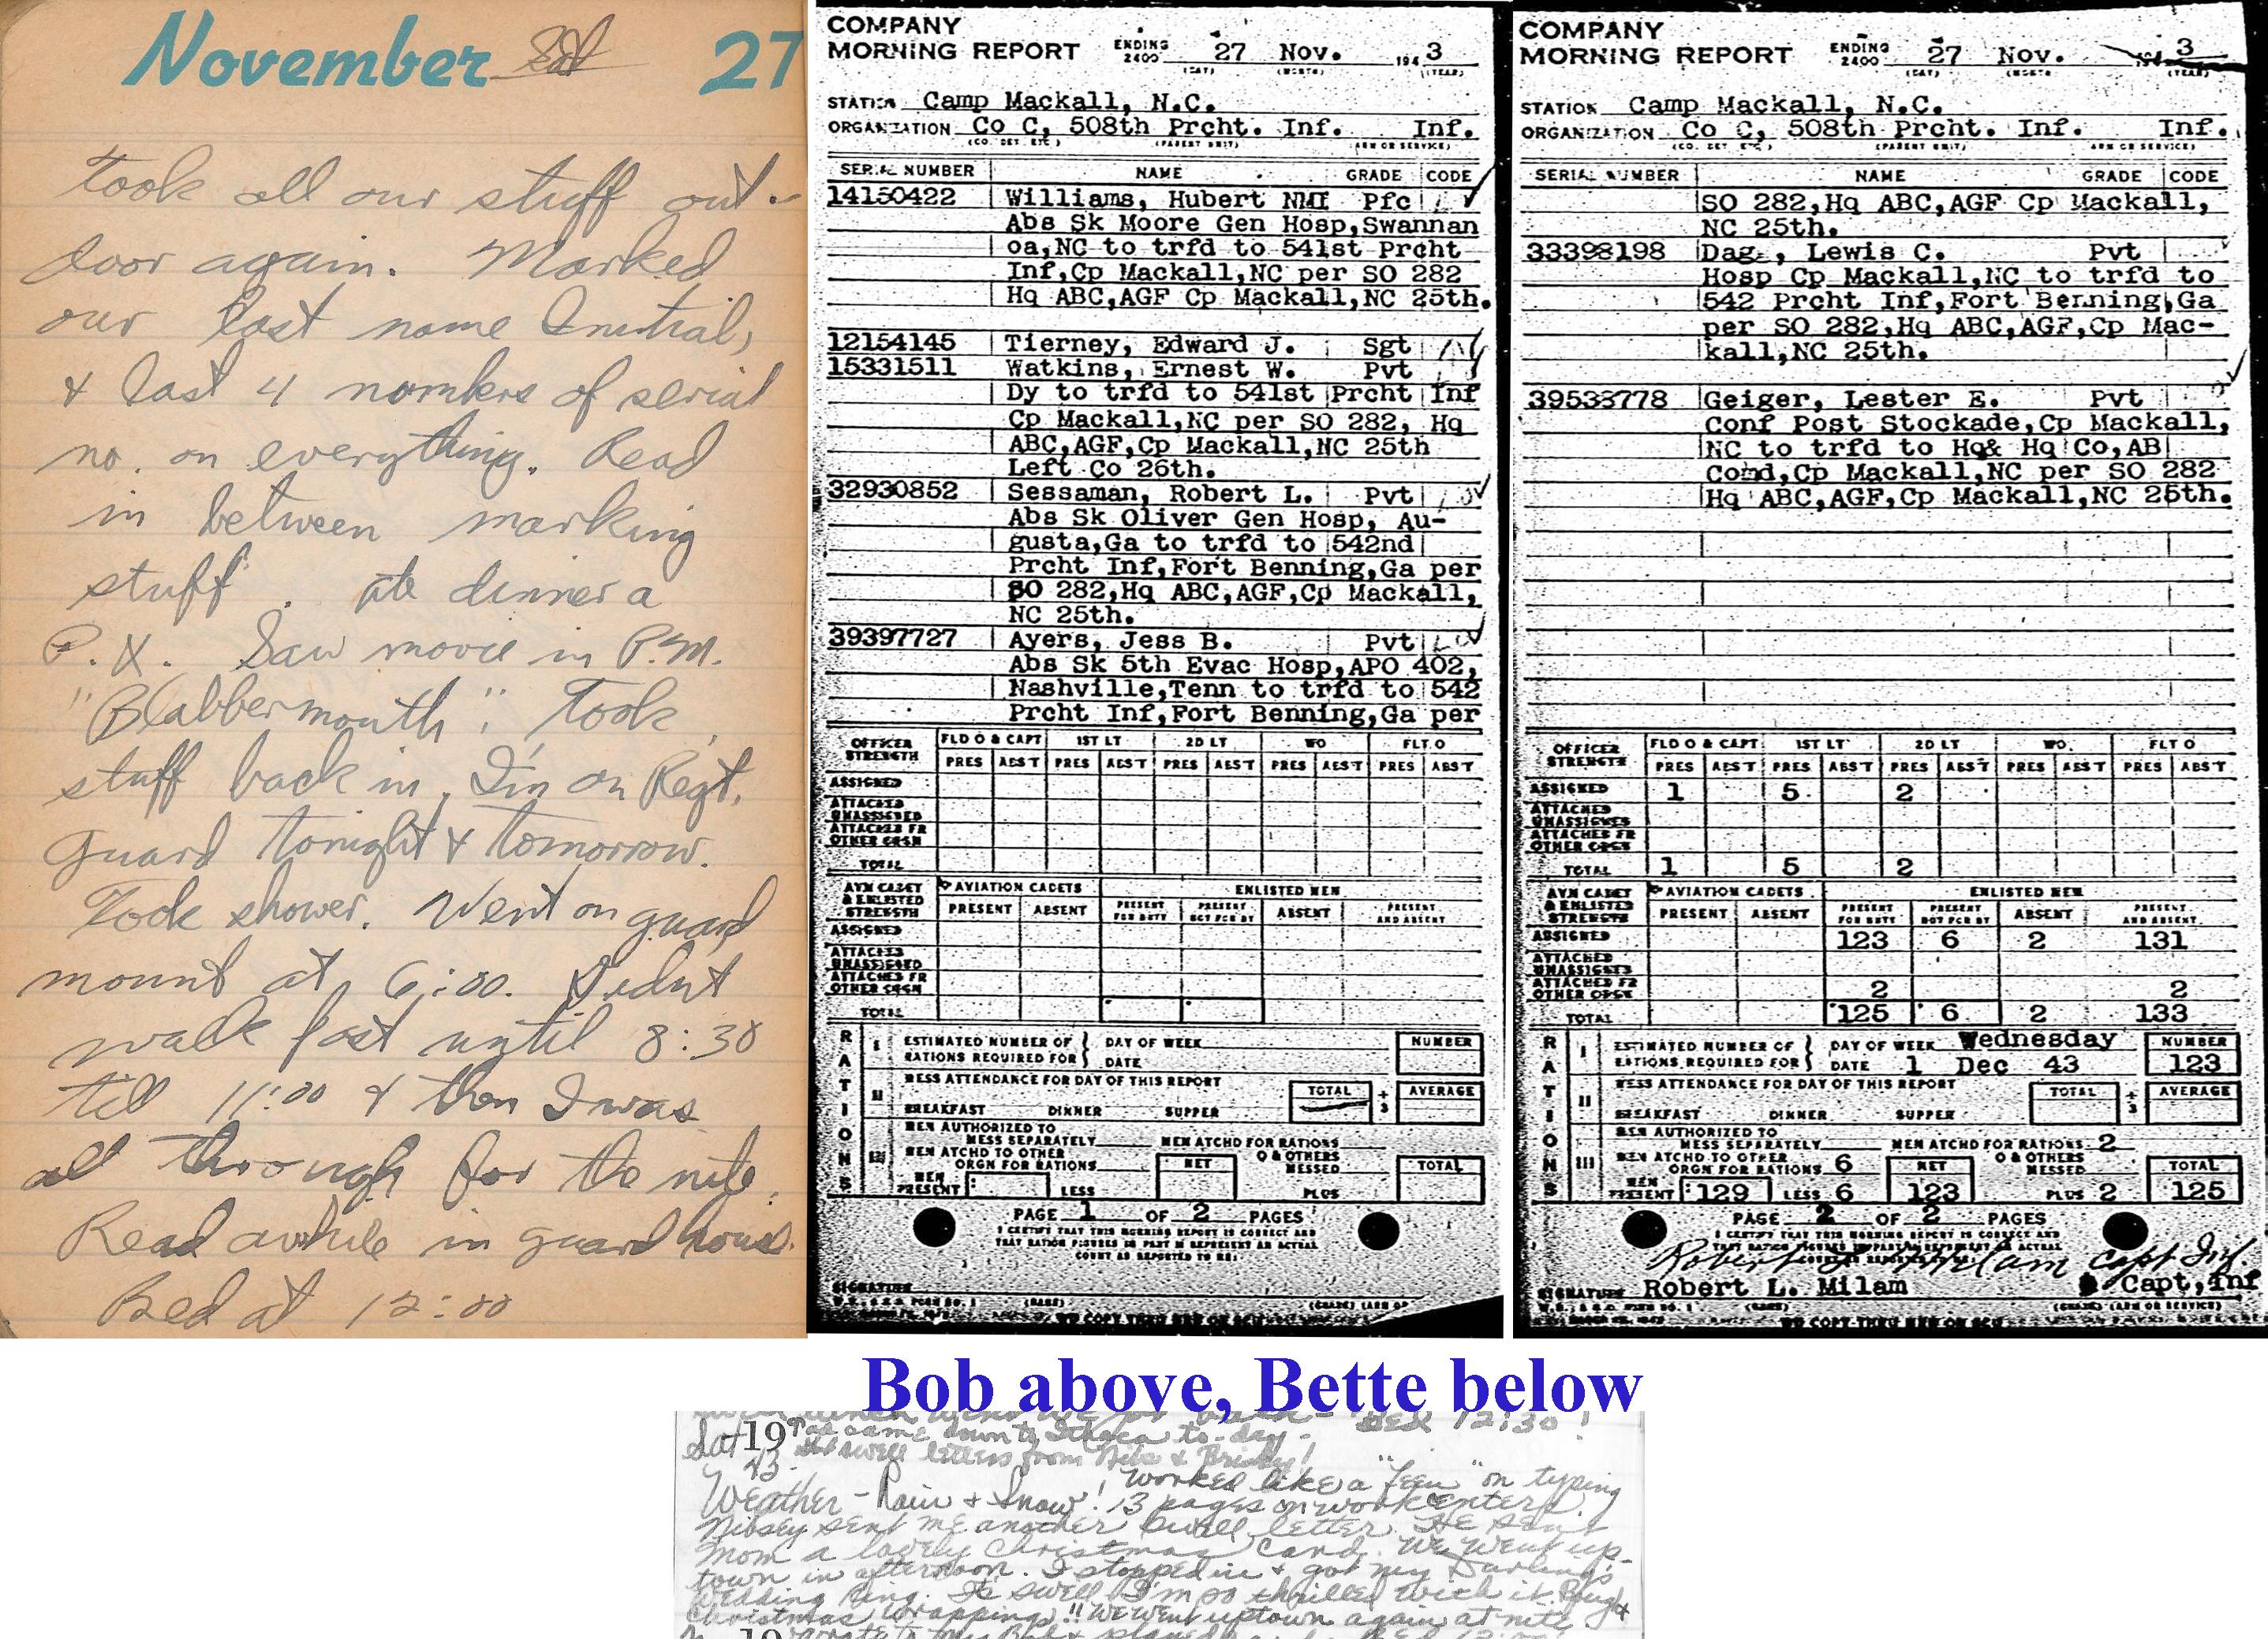 November Sat 27
took all our stuff out-
door again. Marked
our last name Initial,
& last 4 numbers of serial
no. on everything. Read
in between marking
stuff. ate dinner a
P.X. Saw movie in P.M.
"Blabbermouth". Took
stuff back in. I'm on Regt.
guard tonight & tomorrow.
Took shower. Went on guard
mount at 6:00. Didnt
walk post until 8:30
till 11:00 & then I was
all through for the nite.
Read awhile in guard house.
Bed at 12:00
COMPANY
MORNING REPORT ENDING 2400 27 Nov. 194 3
(DAY) (MONTH) (YEAR)
STATION Camp Mackall, N.C.
ORGANIZATION Co C, 508th Prcht. Inf. Inf.
(CO. DET. ETC.) (PARENT UNIT) (ARM OR SERVICE)
SERIAL NUMBER NAME GRADE CODE
14150422 Williams, Hubert NMI Pfc
Abs Sk Moore Gen Hosp,Swannan
oa,NC to trfd to 541st Prcht
Inf,Cp Mackall,NC per SO 282
Hq ABC,AGF Cp Mackall,NC 25th.
12154145 Tierney, Edward J. Sgt
15331511 Watkins, Ernest W. Pvt
Dy to trfd to 541st Prcht Inf
Cp Mackall,NC per SO 282, Hq
ABC,AGF,Cp Mackall,NC 25th
Left Co 26th.
32930852 Sessaman, Robert L. Pvt
Abs Sk Oliver Gen Hosp, Au-
gusta,Ga to trfd to 542nd
Prcht Inf,Fort Benning,Ga per
SO 282,Hq ABC,AGF,Cp Mackall,
NC 25th.
39397727 Ayers, Jess B. Pvt
Abs Sk 5th Evac Hosp,APO 402,
Nashville,Tenn to trfd to 542
Prcht Inf,Fort Benning,Ga per
OFFICER STRENGTH FLD O & CAPT 1ST LT 2D LT WO FLT O
PRES ABST PRES ABST PRES ABST PRES ABST PRES ABST
ASSIGNED
ATTACHED UNASSIGNED
ATTACHED FR OTHER ORGN
TOTAL
AVN CADET & ENLISTED STRENGTH AVIATION CADETS ENLISTED MEN
PRESENT ABSENT PRESENT FOR DUTY PRESENT NOT FOR DY ABSENT PRESENT AND ABSENT
ASSIGNED
ATTACHED UNASSIGNED
ATTACHED FR OTHER ORGN
TOTAL
RATIONS
I ESTIMATED NUMBER OF RATIONS REQUIRED FOR DAY OF WEEK DATE NUMBER
II MESS ATTENDANCE FOR DAY OF THIS REPORT TOTAL ÷ 3 AVERAGE
BREAKFAST DINNER SUPPER
III MEN AUTHORIZED TO MESS SEPARATELY MEN ATCHD FOR RATIONS
MEN ATCHD TO OTHER ORGN FOR RATIONS NET O & OTHERS MESSED TOTAL
MEN PRESENT LESS PLUS
PAGE 1 OF 2 PAGES
I CERTIFY THAT THIS MORNING REPORT IS CORRECT AND
THAT RATION FIGURES IN PART III REPRESENT AN ACTUAL
COUNT AS REPORTED TO ME:
SIGNATURE
COMPANY
MORNING REPORT ENDING 2400 27 Nov. 194 3
(DAY) (MONTH) (YEAR)
STATION Camp Mackall, N.C.
ORGANIZATION Co C, 508th Prcht. Inf. Inf.
(CO. DET. ETC.) (PARENT UNIT) (ARM OR SERVICE)
SERIAL NUMBER NAME GRADE CODE
SO 282,Hq ABC,AGF Cp Mackall,
NC 25th.
33398198 Lewis C. Pvt
Hosp Cp Mackall,NC to trfd to
542 Prcht Inf,Fort Benning,Ga
per SO 282,Hq ABC,AGF,Cp Mac-
kall,NC 25th.
39533778 Geiger, Lester E. Pvt
Conf Post Stockade,Cp Mackall,
NC to trfd to Hq& Hq Co,AB
Comd,Cp Mackall,NC per SO 282
Hq ABC,AGF,Cp Mackall,NC 25th.
OFFICER STRENGTH FLD O & CAPT 1ST LT 2D LT WO FLT O
PRES ABST PRES ABST PRES ABST PRES ABST PRES ABST
ASSIGNED 1 5 2
ATTACHED UNASSIGNED
ATTACHED FR OTHER ORGN
TOTAL 1 5 2
AVN CADET & ENLISTED STRENGTH AVIATION CADETS ENLISTED MEN
PRESENT ABSENT PRESENT FOR DUTY PRESENT NOT FOR DY ABSENT PRESENT AND ABSENT
ASSIGNED 123 6 2 131
ATTACHED UNASSIGNED
ATTACHED FR OTHER ORGN 2 2
TOTAL 125 6 2 133
RATIONS
I ESTIMATED NUMBER OF RATIONS REQUIRED FOR DAY OF WEEK Wednesday NUMBER
DATE 1 Dec 43 123
II MESS ATTENDANCE FOR DAY OF THIS REPORT TOTAL ÷ 3 AVERAGE
BREAKFAST DINNER SUPPER
III MEN AUTHORIZED TO MESS SEPARATELY MEN ATCHD FOR RATIONS 2
MEN ATCHD TO OTHER ORGN FOR RATIONS 6 NET O & OTHERS MESSED TOTAL
MEN PRESENT 129 LESS 6 123 PLUS 2 125
PAGE 2 OF 2 PAGES
I CERTIFY THAT THIS MORNING REPORT IS CORRECT AND
Robert L. Milam Capt Inf
SIGNATURE Robert L. Milam Capt,Inf
(NAME) (GRADE) (ARM OR SERVICE)
Bob above, Bette below
Bed 12:30!
Sat 19 Pop came down to Ithaca to-day-
43 Got swell letters from Nibs & Brinky!
Weather - Rain + Snow! Worked like a "Teen" on typing
13 pages on work enters.
Nibsey sent me another swell letter. He sent
Mom a lovely Christmas card. We went up-
town in afternoon. I stopped in & got my Darlings
Wedding Ring. Its swell I'm so thrilled with it. Bought
Christmas wrappings!! We went uptown again at nite.
19 wrote to my Bob & played